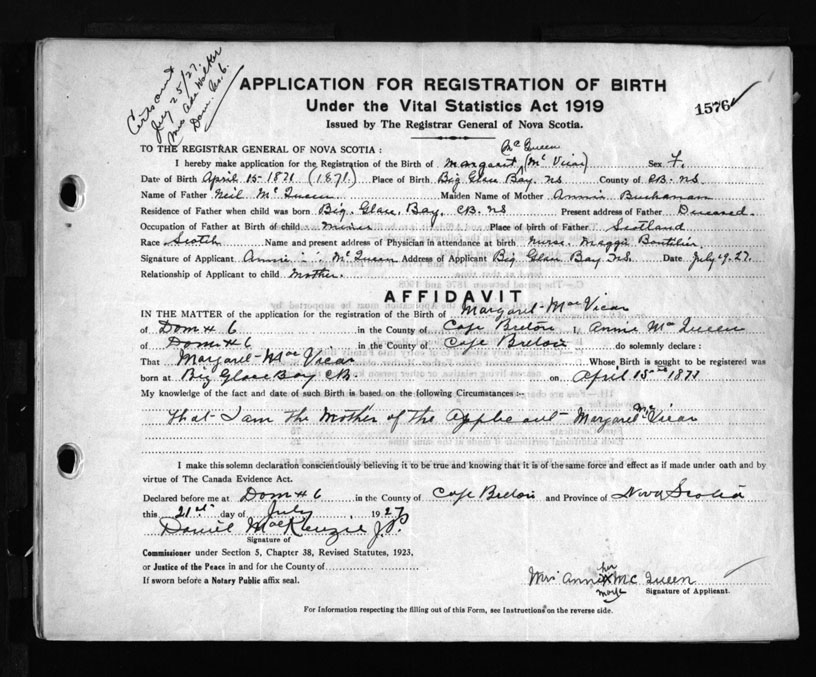 Cert sent
July 25/27.
Mrs Ada Walker
Dom. No. 6.
APPLICATION FOR REGISTRATION OF BIRTH
Under the Vital Statistics Act 1919
Issued by The Registrar General of Nova Scotia.
1576
TO THE REGISTRAR GENERAL OF NOVA SCOTIA :
Mc Queen
I hereby make application for the Registration of the Birth of Margaret (Mc Vicar) Sex F.
Date of Birth April 15-1871 (1871.) Place of Birth Big Glace Bay. NS County of CB. NS.
Name of Father Neil Mc Queen Maiden Name of Mother Annie Buchanan
Residence of Father when child was born Big. Glace. Bay. CB. NS Present address of Father Deceased.
Occupation of Father at Birth of child Miner Place of birth of Father Scotland
Race Scotch Name and present address of Physician in attendance at birth Nurse. Maggie Boutilier.
Signature of Applicant Annie Mc Queen Address of Applicant Big Glace Bay N.S. Date July 19. 27.
Relationship of Applicant to child Mother.
AFFIDAVIT
IN THE MATTER of the application for the registration of the Birth of Margaret Mac Vicar
of Dom # 6 in the County of Cape Breton I, Annie Mc Queen
of Dom # 6 in the County of Cape Breton do solemnly declare :
That Margaret Mac Vicar Whose Birth is sought to be registered was
born at Big Glace Bay CB. on April 15 1871
My knowledge of the fact and date of such Birth is based on the following Circumstances :-
That I am the Mother of the Applicant Margaret Mc Vicar
I make this solemn declaration conscientiously believing it to be true and knowing that it is of the same force and effect as if made under oath and by
virtue of The Canada Evidence Act.
Declared before me at Dom # 6 in the County of Cape Breton and Province of Nova Scotia
this 21st day of July 1927
Daniel MacKenzie J.P.
Signature of
Commissioner under Section 5, Chapter 38, Revised Statutes, 1923,
or Justice of the Peace in and for the County of
If sworn before a Notary Public affix seal.
her
Mrs Annie X Mc Queen
mark
Signature of Applicant.
For Information respecting the filling out of this Form, see Instructions on the reverse side.